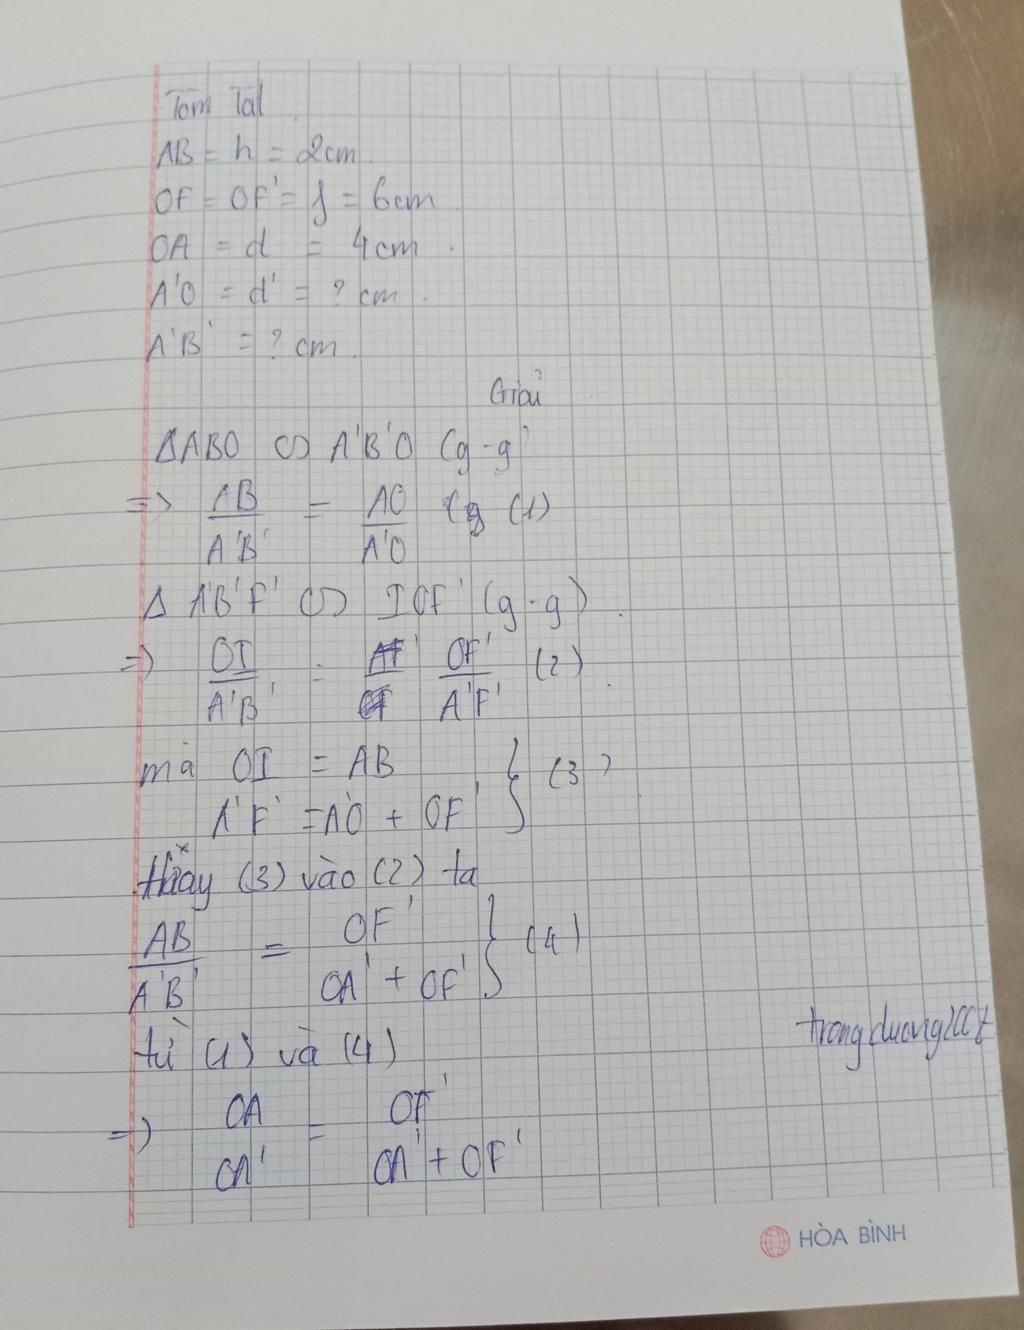 Tóm Tắt
AB = h = 2cm
OF = OF' = f = 6cm
OA = d = 4cm.
A'O = d' = ? cm.
A'B' = ? cm.
Giải
ΔABO ∽ A'B'O (g-g)
=> AB/A'B' = AO/A'O (1)
Δ A'B'F' ∽ IOF' (g-g).
=> OI/A'B' = OF'/A'F' (2).
mà OI = AB
A'F' = A'O + OF' } (3)
thay (3) vào (2) ta
AB/A'B' = OF'/OA' + OF' } (4)
từ (1) và (4)
trongduong2007
=> OA/OA' = OF'/OA' + OF'
HÒA BÌNH